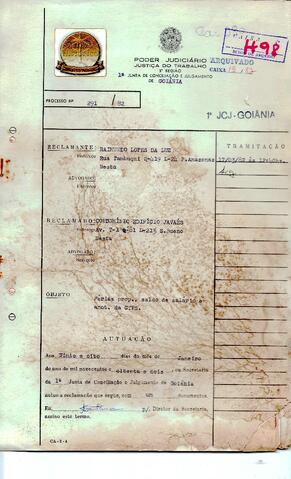 CAIXA
H98
PODER JUDICIÁRIO
ARQUIVADO
JUSTIÇA DO TRABALHO
3ª REGIÃO
CAIXA
1ª JUNTA DE CONCILIAÇÃO E JULGAMENTO
DE
GOIÂNIA
PROCESSO Nº 291 / 82
1ª JCJ-GOIÂNIA
RECLAMANTE: RAIMUNDO LOPES DA LUZ
Endereço Rua Tambuqui Q-419 L-21 P.Amazonas
Nesta
Advogado
Endereço
RECLAMADO: CONDOMÍNIO EDIFÍCIO JAVAÉS
Endereço Av. T-1 L-215 S.Bueno
Nesta
Advogado
Endereço
TRAMITAÇÃO
17/03/82 às
OBJETO
Férias prop., saldo de salário e
anot. da CTPS.
AUTUAÇÃO
Aos Vinte e oito dias do mês de Janeiro
do ano de mil novecentos e oitenta e dois na Secretaria
da 1ª Junta de Conciliação e Julgamento de Goiânia
autuo a reclamação que segue, com um documentos.
Eu p/ Diretor da Secretaria,
assino este termo.